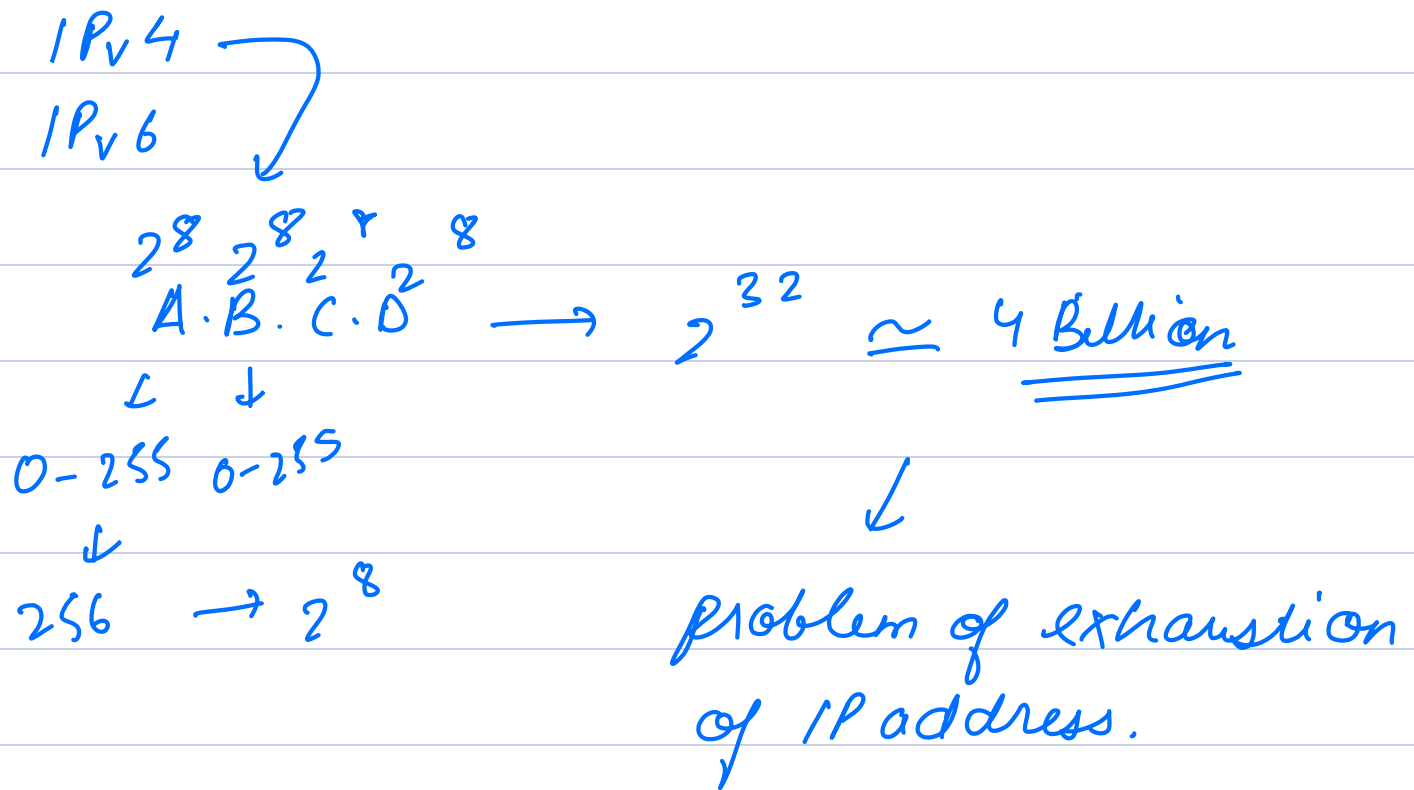 IPv4
IPv6
2^8 2^8 2^8 2^8
A.B.C.D → 2^32 ≃ 4 Billion
↓ ↓
0-255 0-255
↓
256 → 2^8
problem of exhaustion
of IP address.